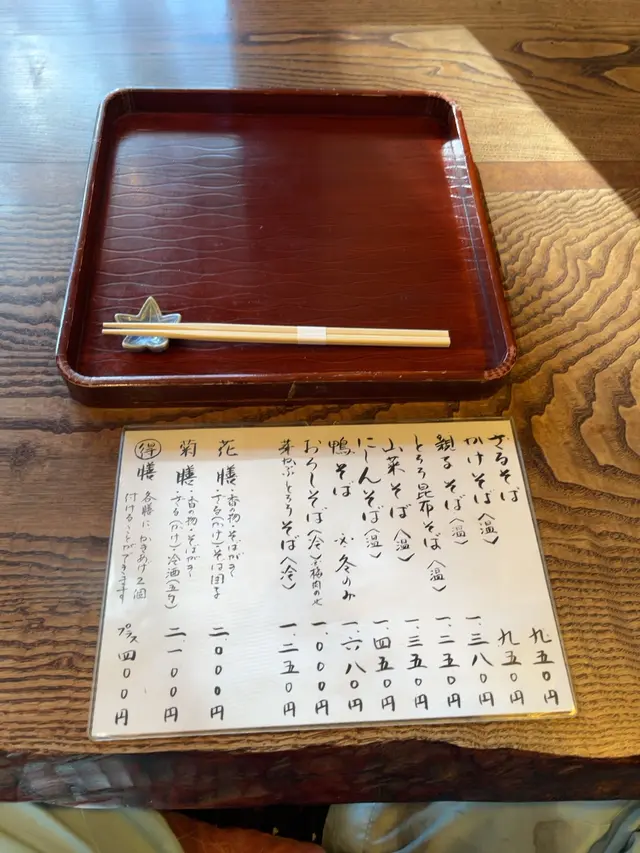 ざるそば 九五0円
かけそば〈温〉 九五0円
親子そば〈温〉 一.三八0円
とろろ昆布そば〈温〉 一.二五0円
山菜そば〈温〉 一.三五0円
にしんそば〈温〉 一.四五0円
鴨そば ※冬のみ 一.六八0円
おろしそば〈冷〉※梅肉のせ 一.000円
芽かぶとろろそば〈冷〉 一.二五0円
花膳 ・香の物・そばがき
・ざる(かけ)・そば団子 二.000円
菊膳 ・香の物・そばがき
・ざる(かけ)・冷酒(五勺) 二.一00円
得膳 各膳にかきあげ2個
付けることができます プラス四00円